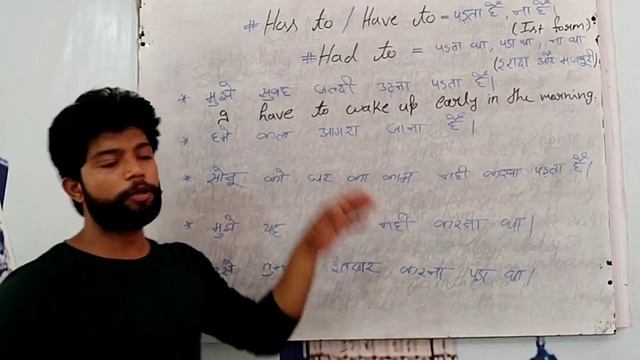 # Has to / Have to = पड़ता है, ना है
(Ist form)
# Had to = पड़ता था, पड़ा था, ना था
(इरादा और मजबूरी)
* मुझे सुबह जल्दी उठना पड़ता है।
I have to wake up early in the morning.
* हमे कल आगरा जाना है।
* सोनू को घर का काम नही करना पड़ता है।
* मुझे यह नही करना था।
इंतजार करना पड़ा था।